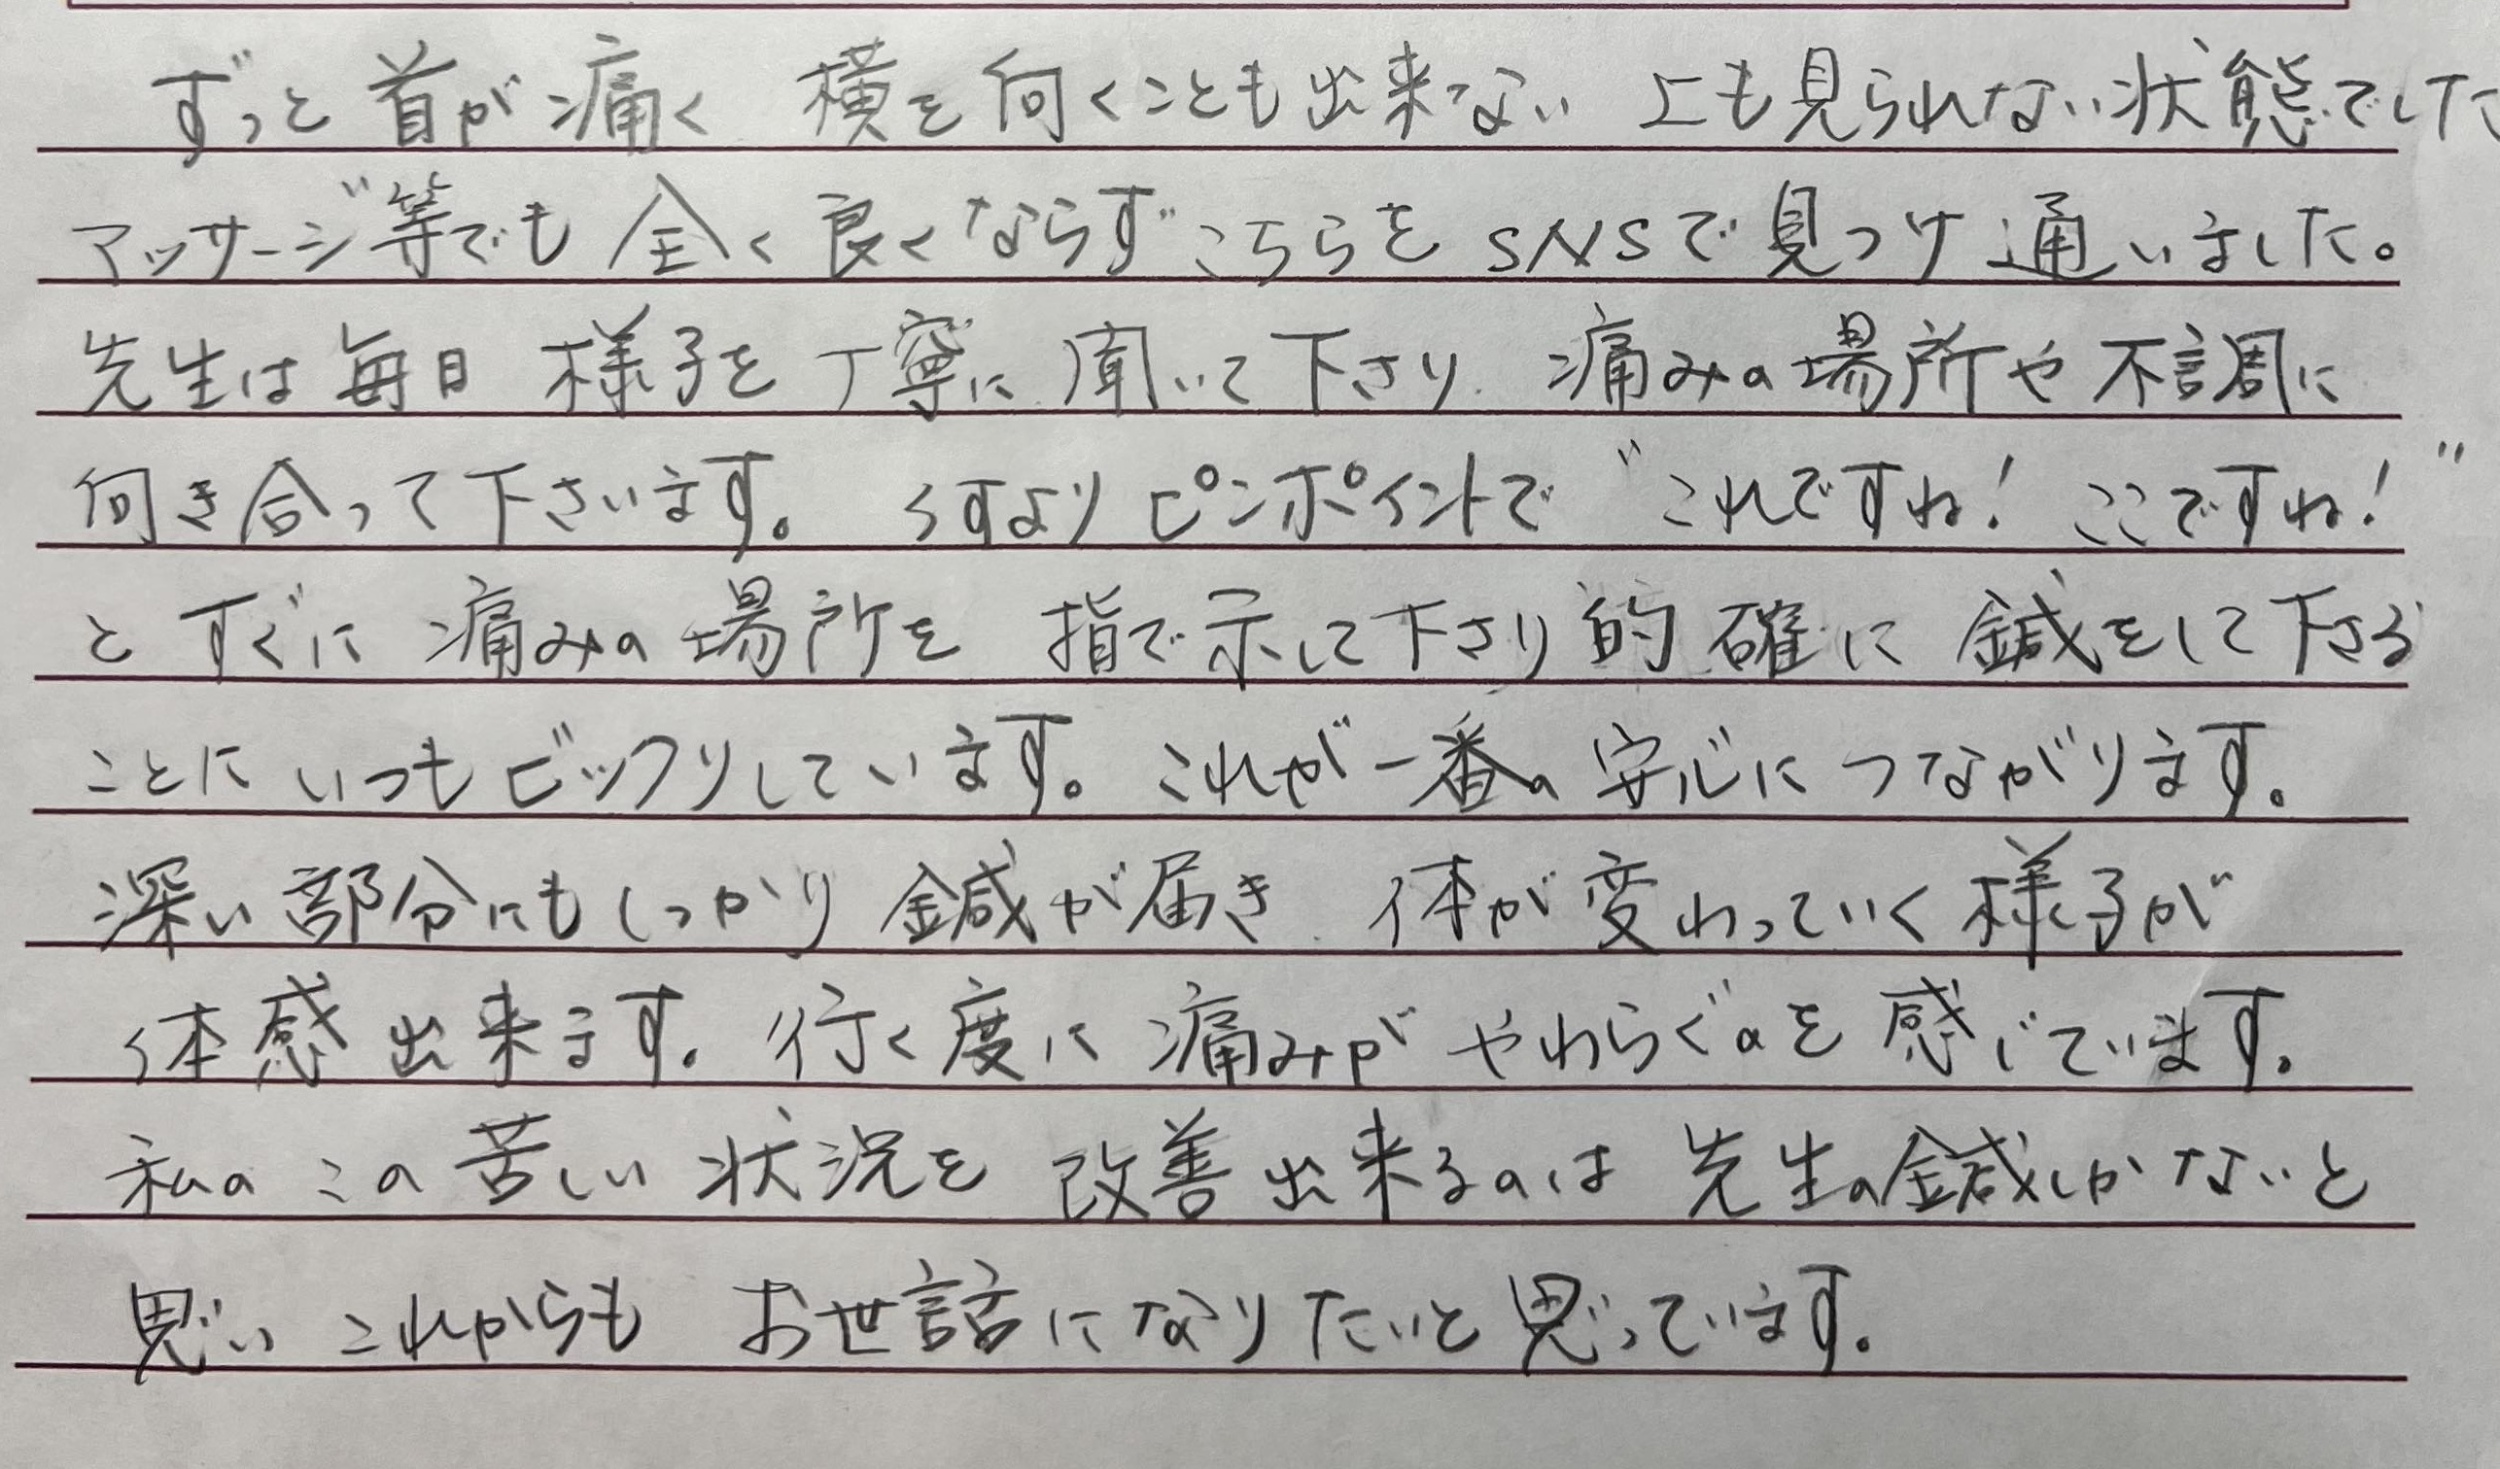 ずっと首が痛く 横を向くことも出来ない 上も見られない状態でした
マッサージ等でも 全く良くならず こちらを SNSで見つけ 通いました。
先生は毎日 様子を丁寧に聞いて下さり 痛みの場所や不調に
向き合って下さいます。 ピンポイントで "これですね! ここですね!"
と すぐに 痛みの場所を 指で示して下さり 的確に 鍼をして下さる
ことに いつもビックリしています。これが一番の安心につながります。
深い部分にもしっかり 鍼が届き 体が変わっていく様子が
体感出来ます。行く度に 痛みが やわらぐのを感じています。
私の この苦しい状況を 改善出来るのは 先生の鍼しかないと
思い これからも お世話になりたいと思っています。